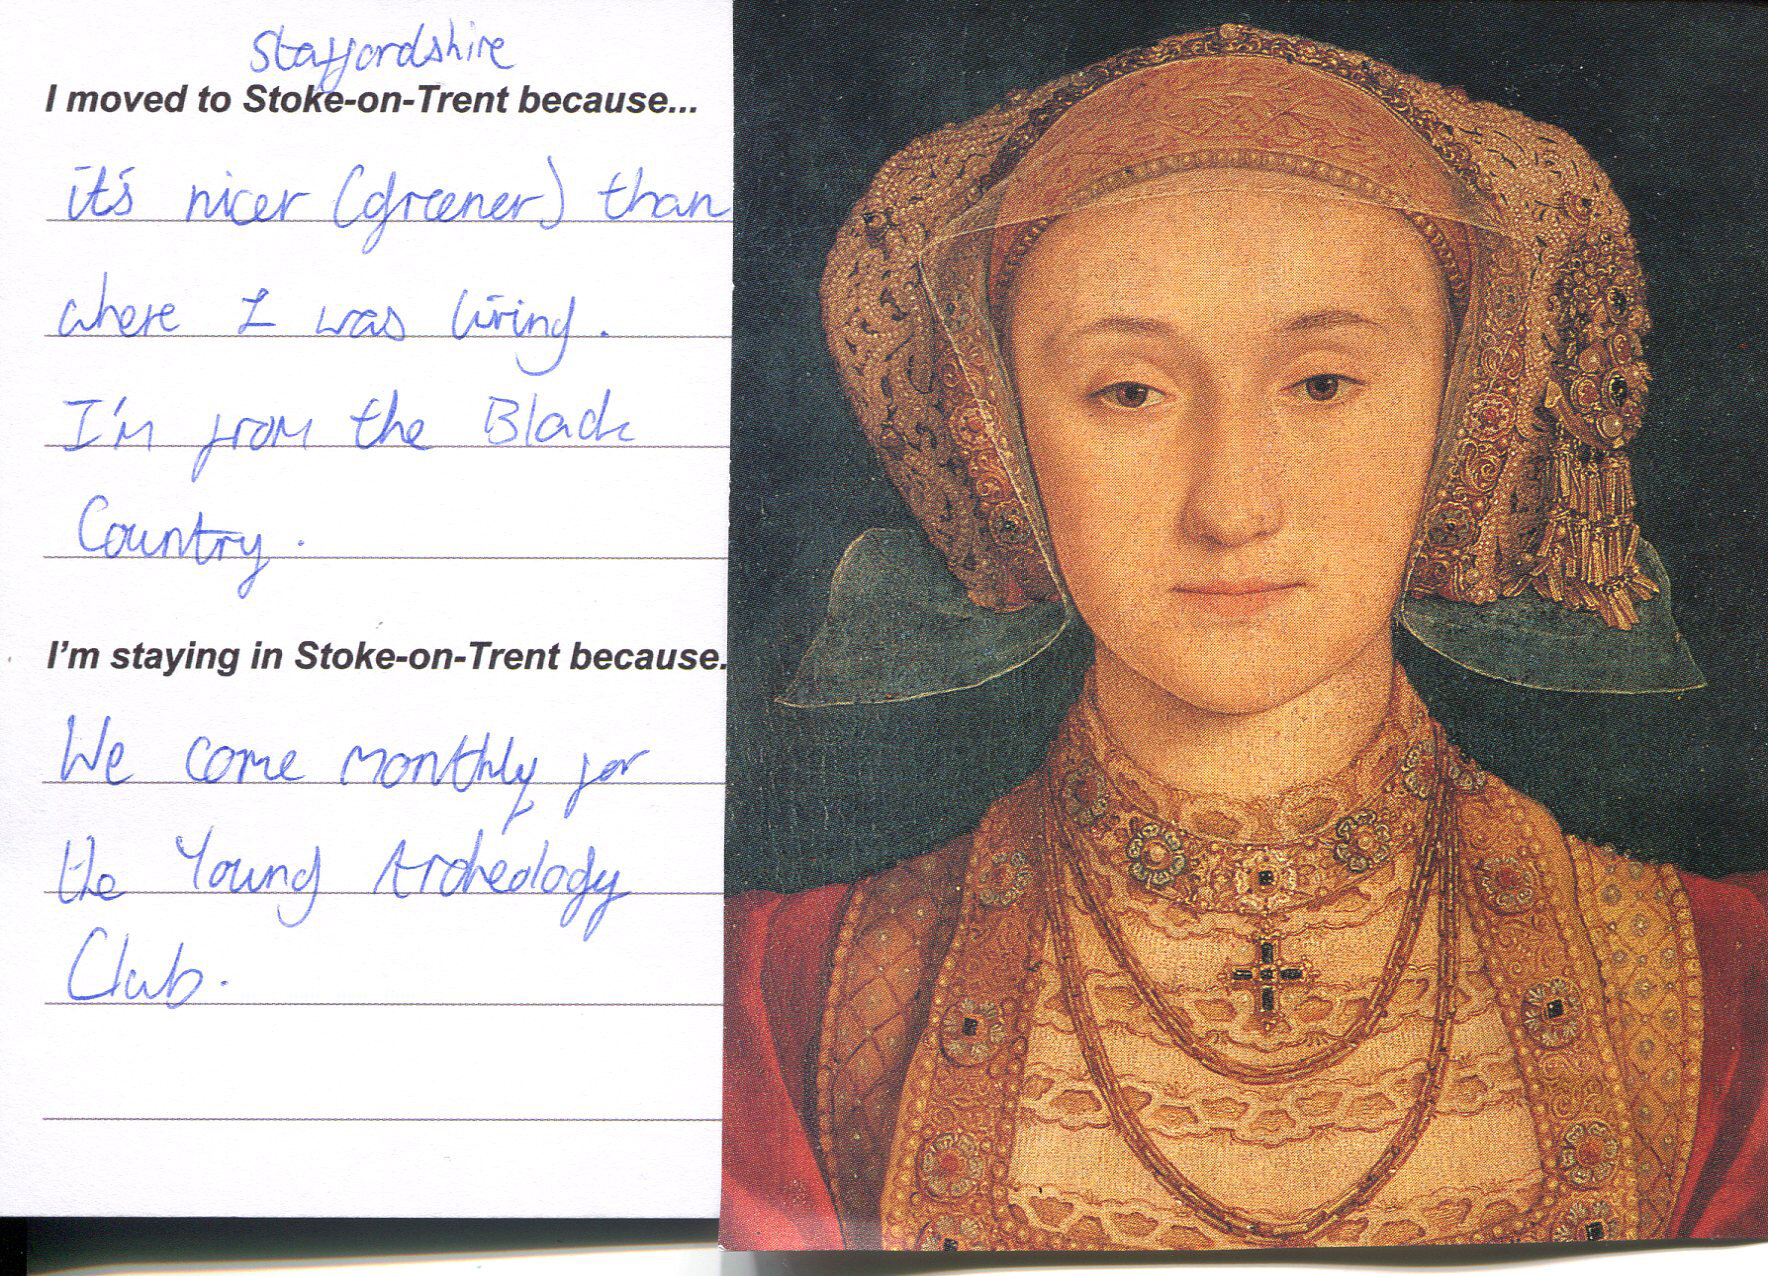 Staffordshire
I moved to Stoke-on-Trent because...
it's nicer (greener) than
where I was living.
I'm from the Black
Country.
I'm staying in Stoke-on-Trent because.
We come monthly for
the Young Archeology
Club.